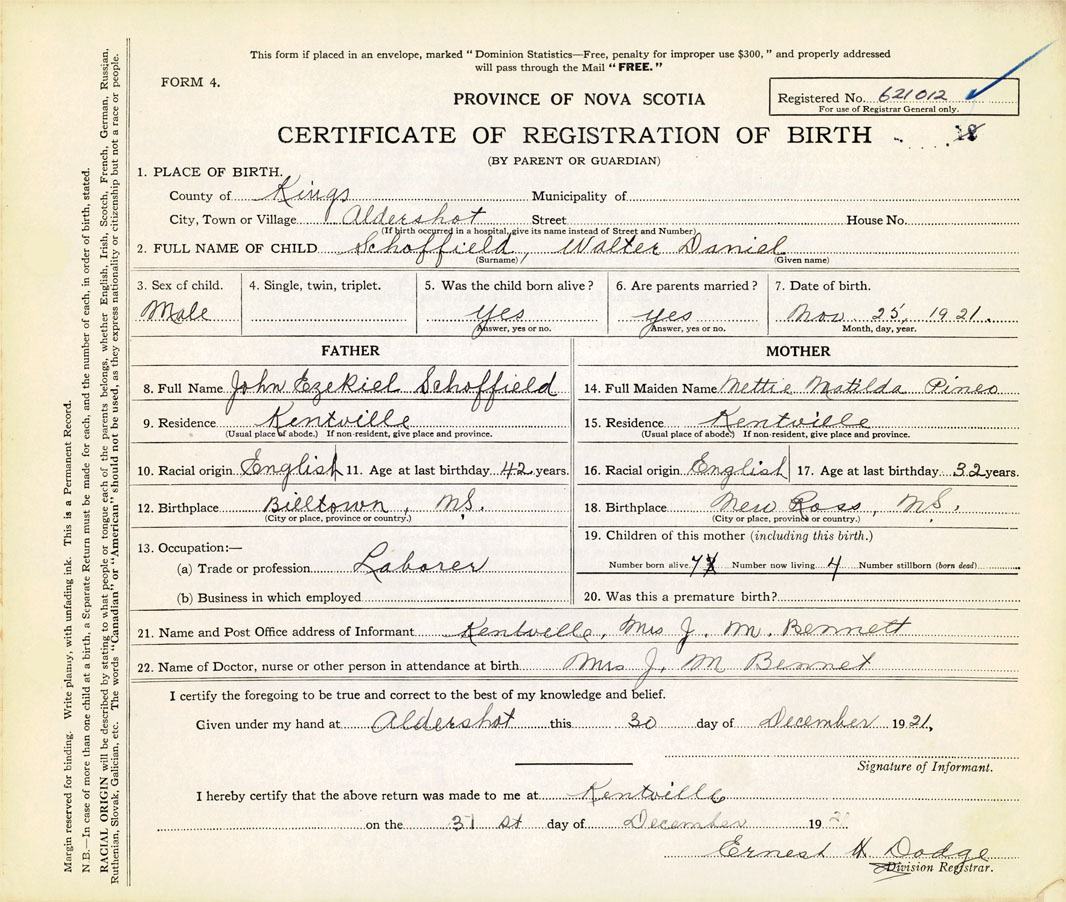 This form if placed in an envelope, marked "Dominion Statistics—Free, penalty for improper use $300," and properly addressed
will pass through the Mail "FREE."
FORM 4.
PROVINCE OF NOVA SCOTIA
Registered No. 621012
For use of Registrar General only.
CERTIFICATE OF REGISTRATION OF BIRTH
(BY PARENT OR GUARDIAN)
1. PLACE OF BIRTH.
County of Kings Municipality of
City, Town or Village Aldershot Street House No.
(If birth occurred in a hospital, give its name instead of Street and Number)
2. FULL NAME OF CHILD Schoffield, Walter Daniel
(Surname) (Given name)
3. Sex of child. 4. Single, twin, triplet. 5. Was the child born alive? 6. Are parents married? 7. Date of birth.
Male yes yes Nov 25, 1921.
Answer, yes or no. Answer, yes or no. Month, day, year.
FATHER MOTHER
8. Full Name John Ezekiel Schoffield 14. Full Maiden Name Nettie Matilda Pineo
9. Residence Kentville 15. Residence Kentville
(Usual place of abode.) If non-resident, give place and province. (Usual place of abode) If non-resident, give place and province.
10. Racial origin English 11. Age at last birthday 42 years. 16. Racial origin English 17. Age at last birthday 32 years.
12. Birthplace Billtown, N.S. 18. Birthplace New Ross, N.S.
(City or place, province or country.) (City or place, province or country.)
19. Children of this mother (including this birth.)
13. Occupation:—
(a) Trade or profession Laborer Number born alive Number now living 4 Number stillborn (born dead)
(b) Business in which employed 20. Was this a premature birth?
21. Name and Post Office address of Informant Kentville, Mrs J. M. Bennett
22. Name of Doctor, nurse or other person in attendance at birth Mrs J. M Bennet
I certify the foregoing to be true and correct to the best of my knowledge and belief.
Given under my hand at Aldershot this 30 day of December 1921,
Signature of Informant.
I hereby certify that the above return was made to me at Kentville
on the 31 st day of December 19
Ernest H Dodge
Division Registrar.
Margin reserved for binding. Write plainly, with unfading ink. This is a Permanent Record.
N.B.—In case of more than one child at a birth, a Separate Return must be made for each, and the number of each, in order of birth, stated.
RACIAL ORIGIN will be described by stating to what people or tongue each of the parents belongs, whether English, Irish, Scotch, French, German, Russian,
Ruthenian, Slovak, Galician, etc. The words "Canadian" or "American" should not be used, as they express nationality or citizenship but not a race or people.